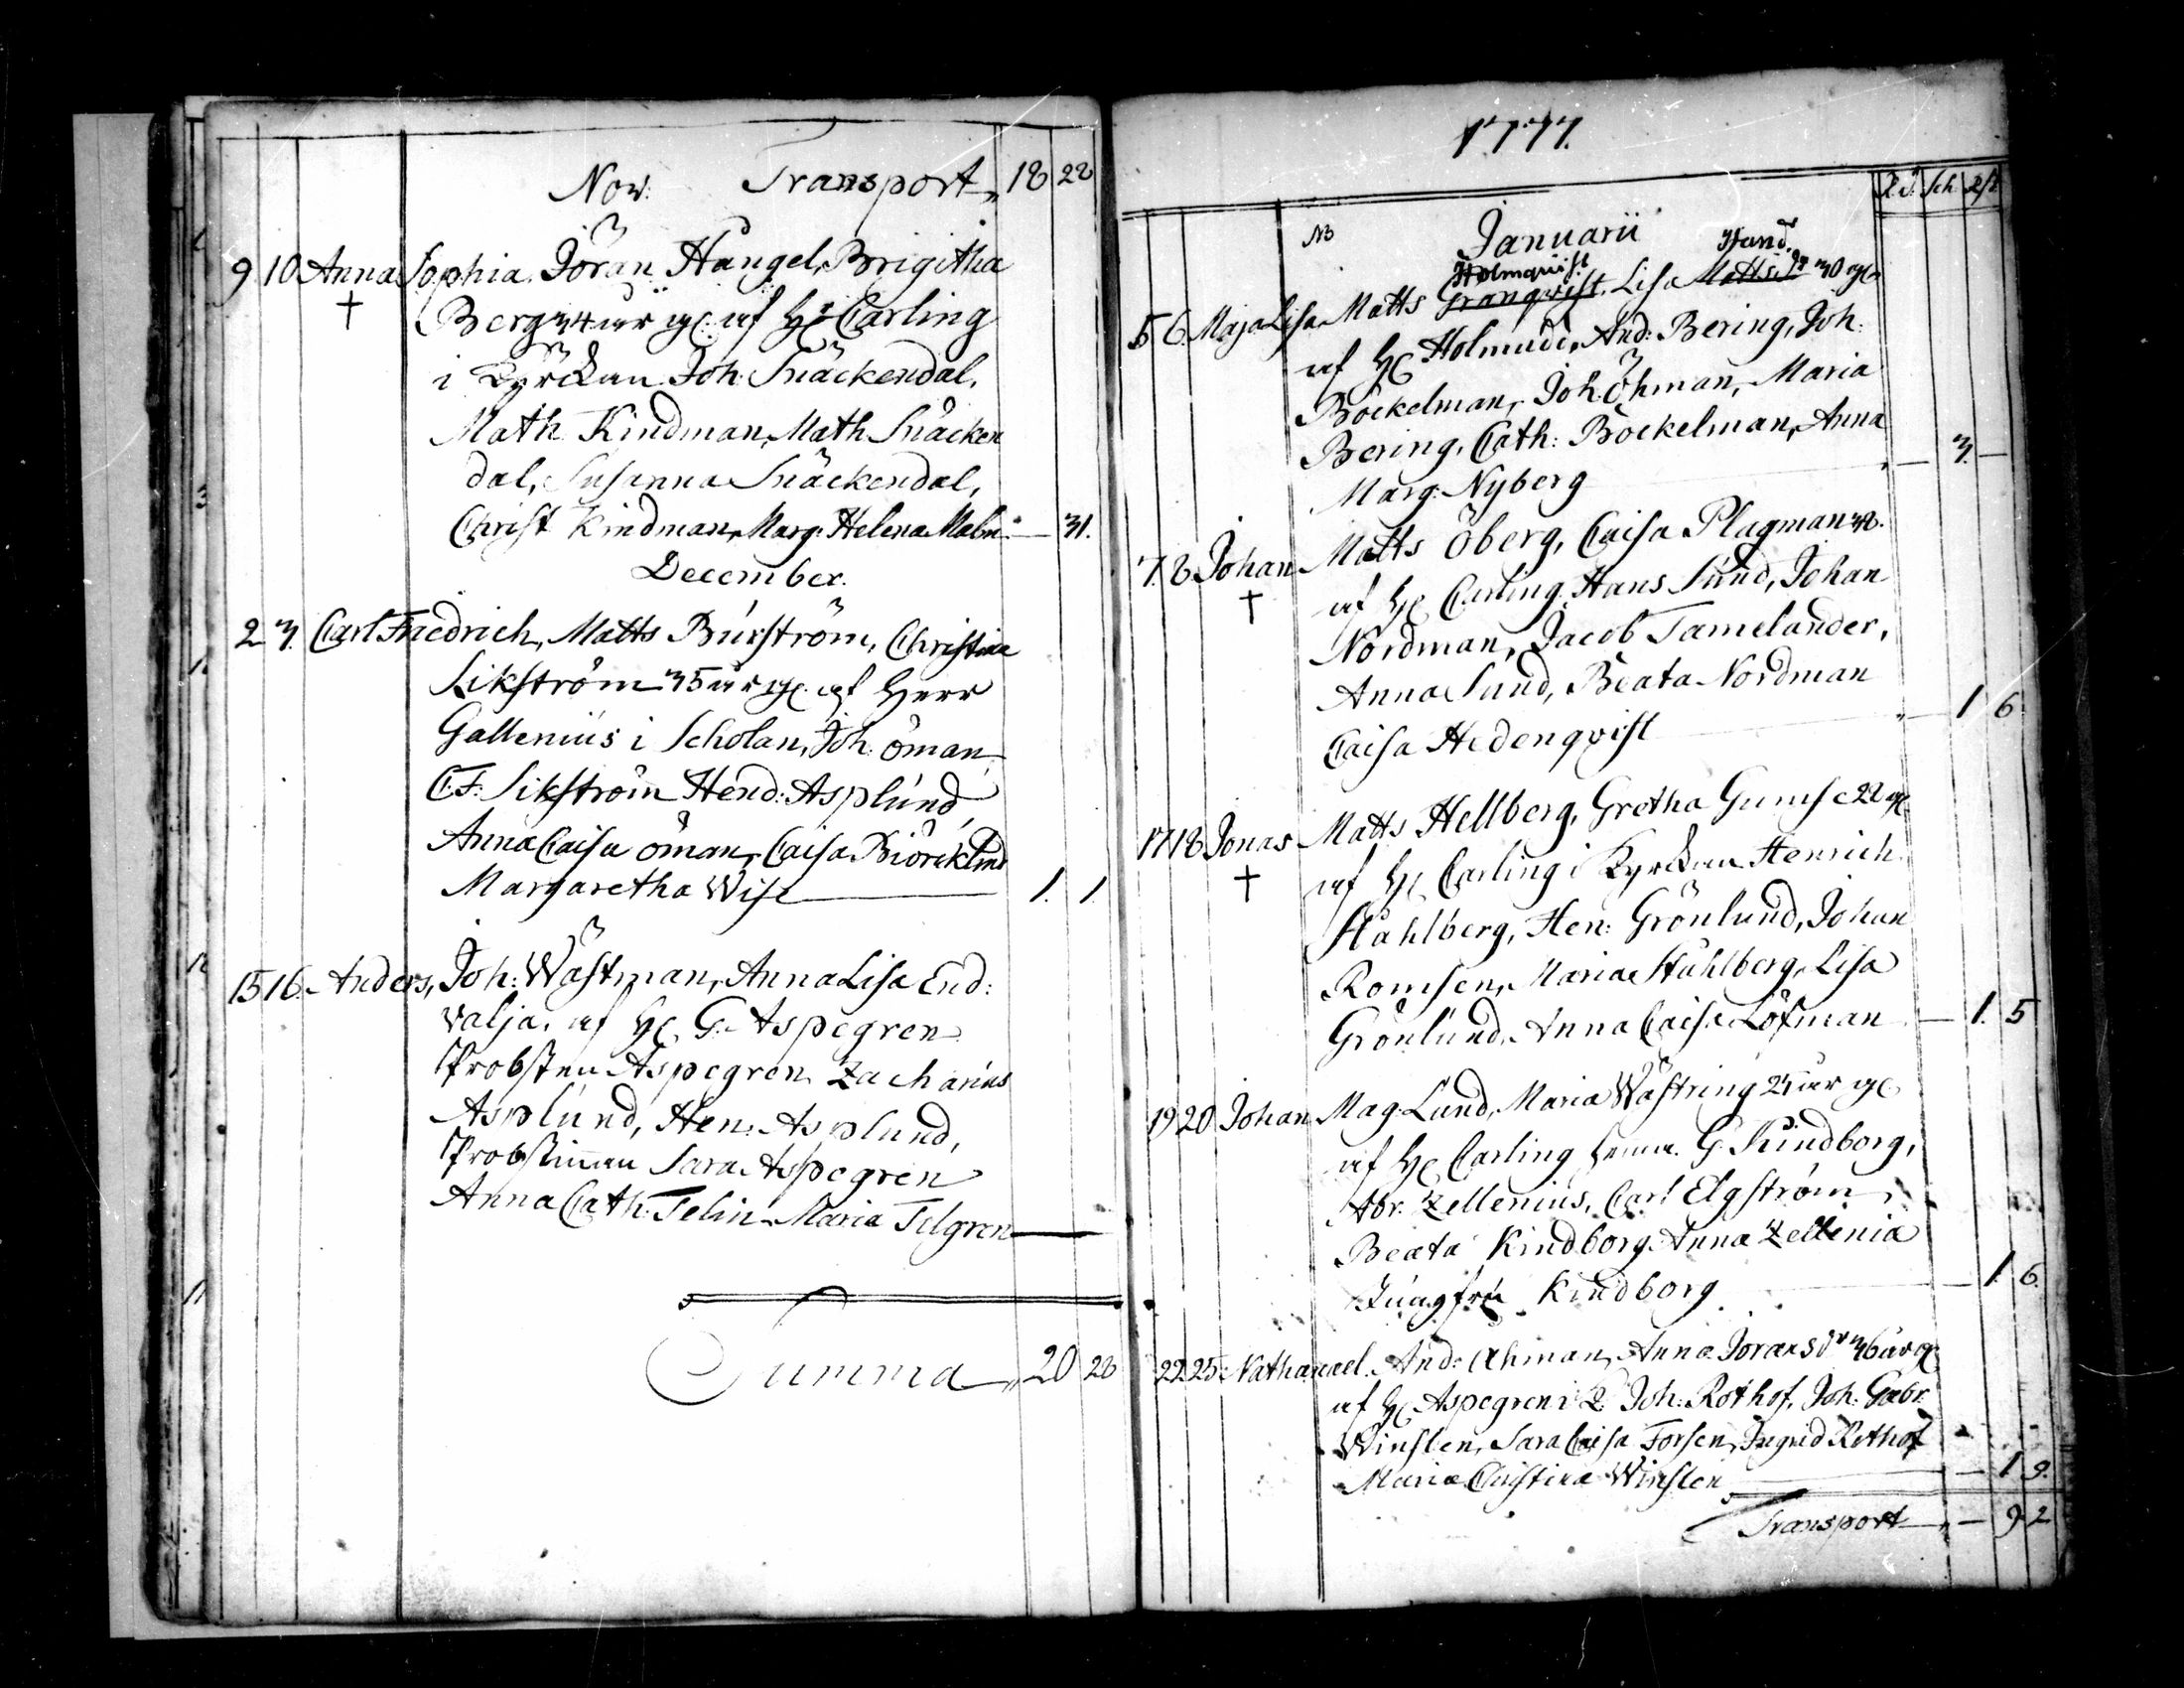 Nov: Transport 18 28
9 10 Anna Sophia Jöran Hangel, Brigitha
† Berg 34 år gl: af Hr Carling
i Kyrckan Joh: Snäckendal,
Math Kindman, Math Snäcken
dal, Susanna Snäckendal,
Christ Kindman, Marg: Helena Malm — 31.
December.
2 3. Carl Friedrich, Matts Burström, Christina
Sikström 35 år gl. af Herr
Gallenius i Scholan, Joh: öman,
C.F: Sikström Hend: Asplund,
Anna Caisa öman, Caisa Biörcklund
Margaretha Wise — 1. 1.
15 16. Anders, Joh: Wästman, Anna Lisa End:
valja, af Hr G: Aspegren
Probsten Aspegren Zacharias
Asplund, Hen: Asplund,
Probstinnan Sara Aspegren
Anna Cath: Telin Maria Telgren —
Summa 20 28
1777.
R.d. Sch
NB Januarii
Holmqvist Hand.
5 6. Maja Lisa Matts Granqvist, Lisa Mattsdr 30 gl
af Hr Holmudd, And: Bering, Joh:
Böckelman, Joh: Öhman, Maria
Bering, Cath: Böckelman, Anna
Marg: Nyberg — 3. —
7. 8. Johan Matts Öberg, Caisa Plagman 38.
† af Hr Carling, Hans Sund, Johan
Nordman, Jacob Tamelander,
Anna Sund, Beata Nordman
Caisa Hedenqvist — 1 6.
17 18 Jonas Matts Hellberg, Gretha Gumse 22 gl
† af Hr Carling i Kyrckan Henrich
Ståhlberg, Hen: Grönlund, Johan
Romsen, Maria Ståhlberg, Lisa
Grönlund, Anna Caisa Löfman — 1. 5
19 20 Johan Mag: Lund, Maria Wästring 25 år gl
af Hr Carling hemma. G. Kindborg,
Abr. Zellenius, Carl Elgström,
Beata Kindborg Anna Zellinia
Jungfru Kindborg — 1. 6.
22 25. Nathanael. And: Ahman, Anna Joransdr 36 år gl
af Hr Aspegren i K. Joh: Rothof, Joh: Gabr:
Winsten, Sara Caisa Forsen, Ingrid Rothof
Maria Christina Winsten — 1 9.
Transport — 9 2